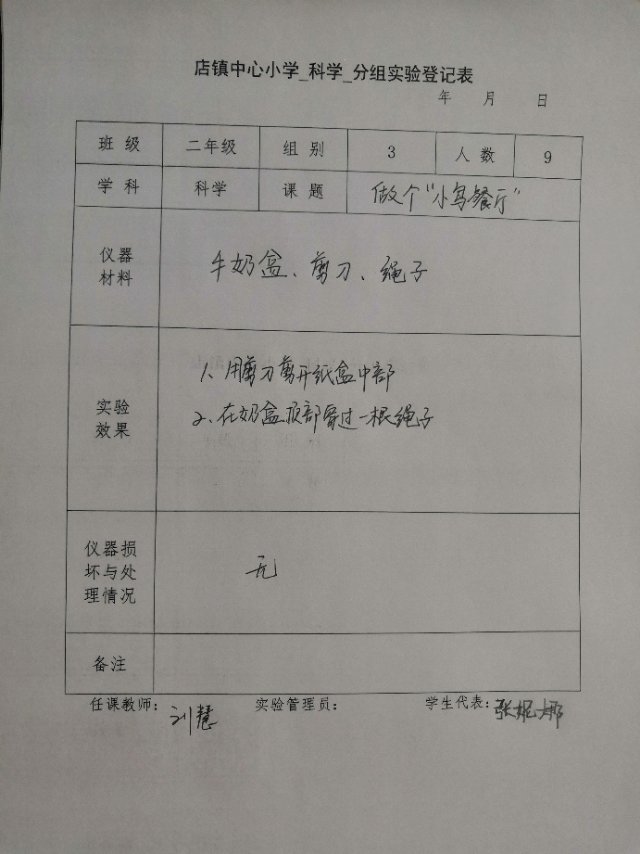 店镇中心小学_科学_分组实验登记表
年 月 日
班 级 二年级 组 别 3 人 数 9
学 科 科学 课 题 做个“小鸟餐厅”
仪器
材料
牛奶盒、剪刀、绳子
实验
效果
1、用剪刀剪开纸盒中部
2、在奶盒顶部穿过一根绳子
仪器损
坏与处
理情况
无
备注
任课教师：刘慧 实验管理员： 学生代表：张妮娜